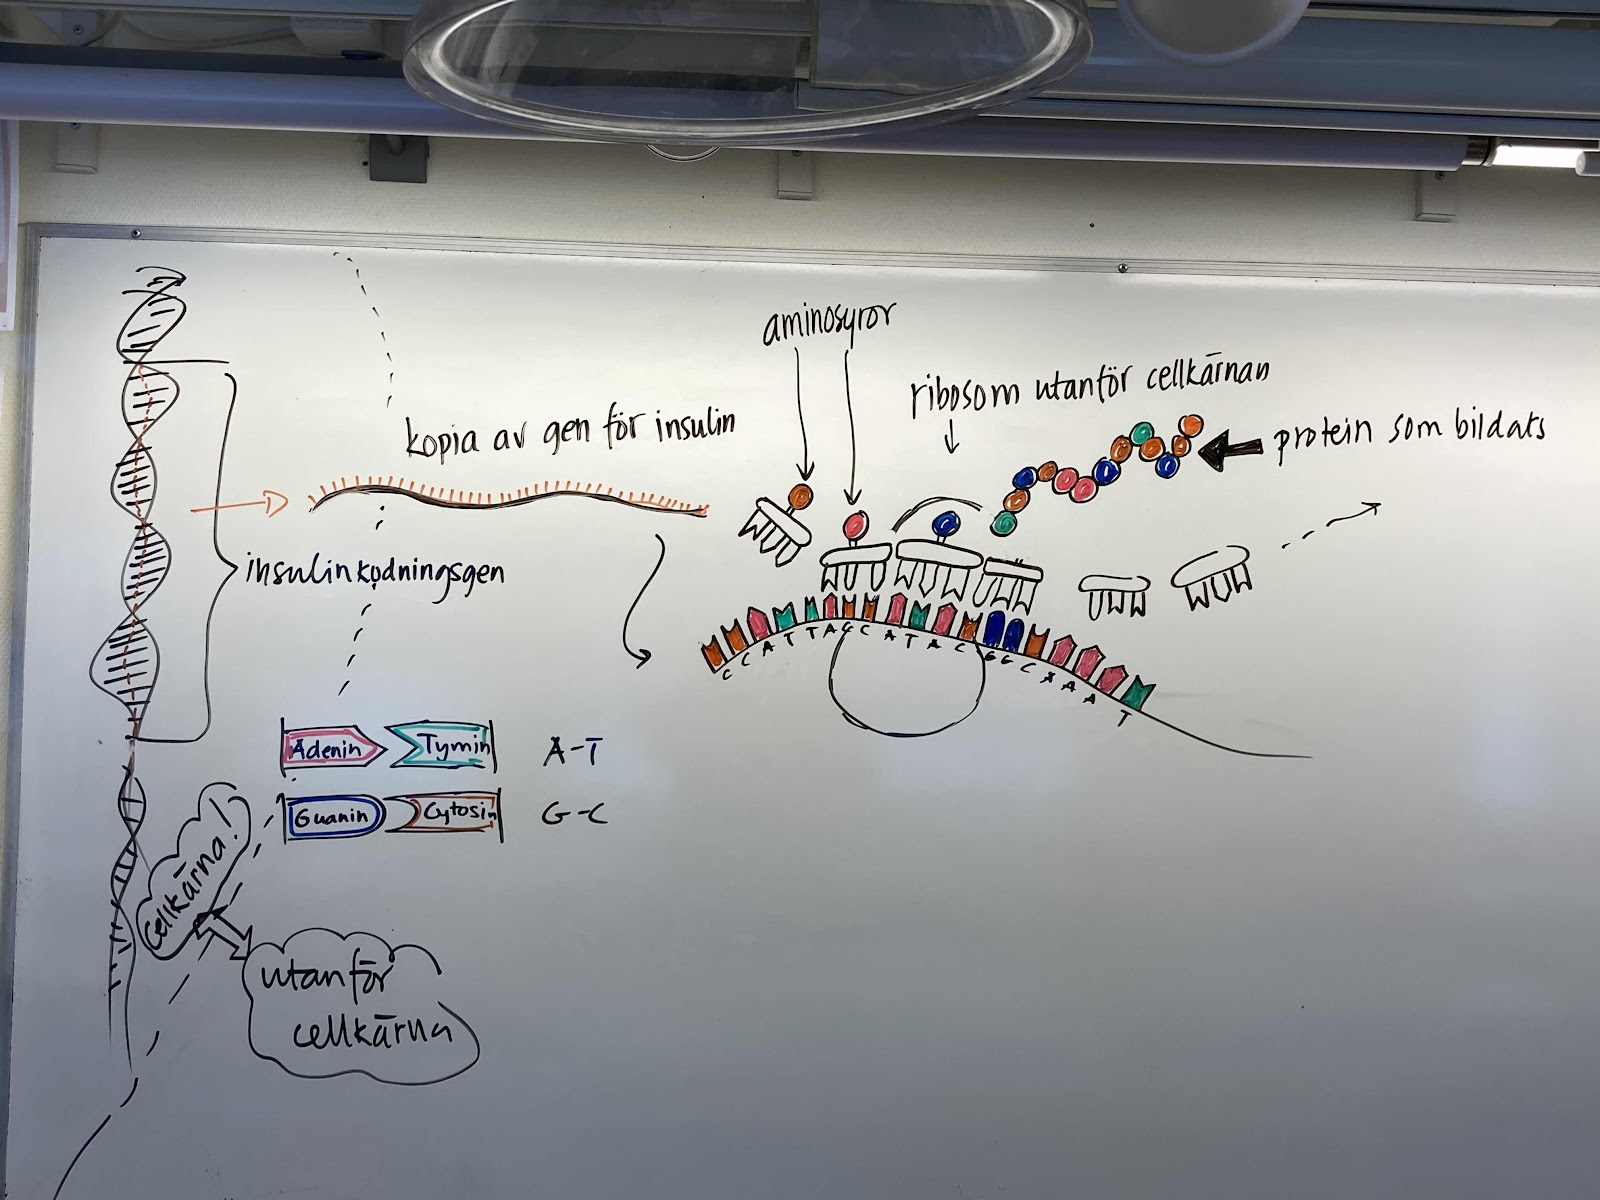 aminosyror
ribosom utanför cellkärnan
kopia av gen för insulin
protein som bildats
insulinkodningsgen
C C A T T A C C A T A C G G C A A A T
Adenin Tymin A-T
Guanin Cytosin G-C
Cellkärna!
utanför
cellkärna